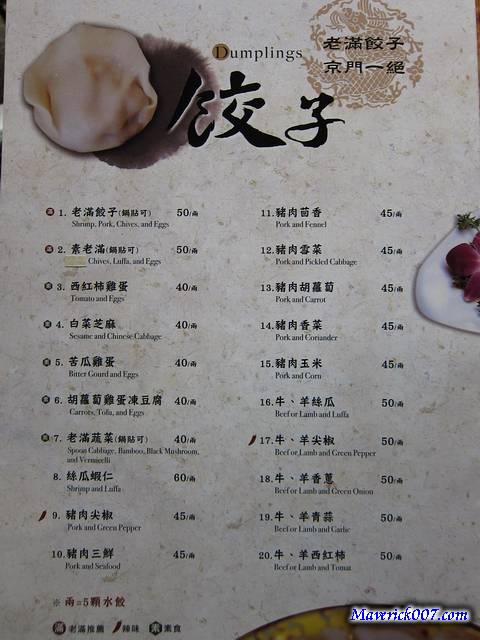 Dumplings
老滿餃子
京門一絕
餃子
滿 1. 老滿餃子(鍋貼可) 50/兩
Shrimp, Pork, Chives, and Eggs
滿 2. 素老滿(鍋貼可) 50/兩
Chives, Luffa, and Eggs
素 3. 西紅柿雞蛋 40/兩
Tomato and Eggs
素 4. 白菜芝麻 40/兩
Sesame and Chinese Cabbage
素 5. 苦瓜雞蛋 40/兩
Bitter Gourd and Eggs
素 6. 胡蘿蔔雞蛋凍豆腐 40/兩
Carrots, Tofu, and Eggs
素 7. 老滿蔬菜(鍋貼可) 40/兩
Spoon Cabbage, Bamboo, Black Mushroom,
and Vermicelli
8. 絲瓜蝦仁 60/兩
Shrimp and Luffa
9. 豬肉尖椒 45/兩
Pork and Green Pepper
10. 豬肉三鮮 45/兩
Pork and Seafood
11. 豬肉茴香 45/兩
Pork and Fennel
12. 豬肉雪菜 45/兩
Pork and Pickled Cabbage
13. 豬肉胡蘿蔔 45/兩
Pork and Carrot
14. 豬肉香菜 45/兩
Pork and Coriander
15. 豬肉玉米 45/兩
Pork and Corn
16. 牛、羊絲瓜 50/兩
Beef or Lamb and Luffa
17. 牛、羊尖椒 50/兩
Beef or Lamb and Green Pepper
18. 牛、羊香蔥 50/兩
Beef or Lamb and Green Onion
19. 牛、羊青蒜 50/兩
Beef or Lamb and Garlic
20. 牛、羊西紅柿 50/兩
Beef or Lamb and Tomat
※ 兩=5顆水餃
滿 老滿推薦 辣味 素 素食
Maverick007.com